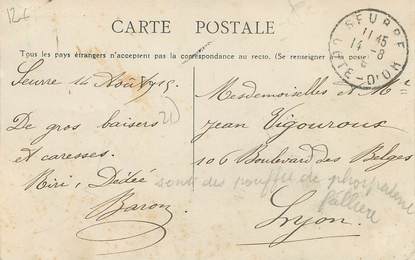 12€
CARTE POSTALE
Tous les pays étrangers n'acceptent pas la correspondance au recto. (Se renseigner poste)
SEURRE
11 45
14 -8
CÔTE-D'OR
Seurre 14 Août
De gros baisers
et caresses.
Riri, Dédée
Baron
Mesdemoiselles et Mr
Jean Vigouroux
106 Boulevard des Belges
Lyon
sont des de phosphatine
fallière